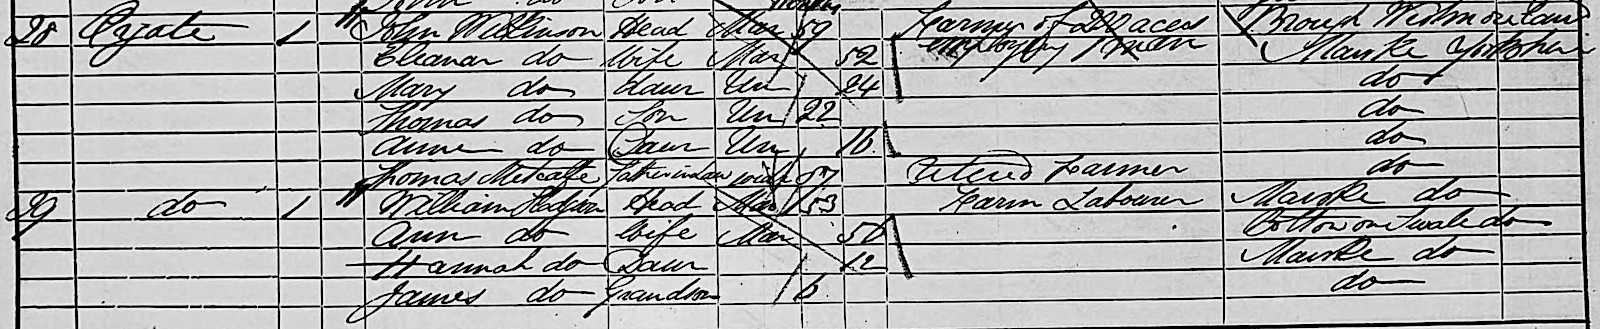 28 1 John Wilkinson Head Mar 59 Farmer of acres Brough Westmoreland
Eleanor do Wife Mar 52 employing 1 man Marske Yorkshire
Mary do Daur Un 24 do
Thomas do Son Un 22 do
Anne do Daur Un 16 do
Thomas Metcalfe Father in law Wid 87 Retired Farmer do
29 do 1 William Hodgson Head Mar 53 Farm Labourer Marske do
Ann do Wife Mar Bolton on Swale do
Hannah do Daur 12 Marske do
James do Grandson 6 do